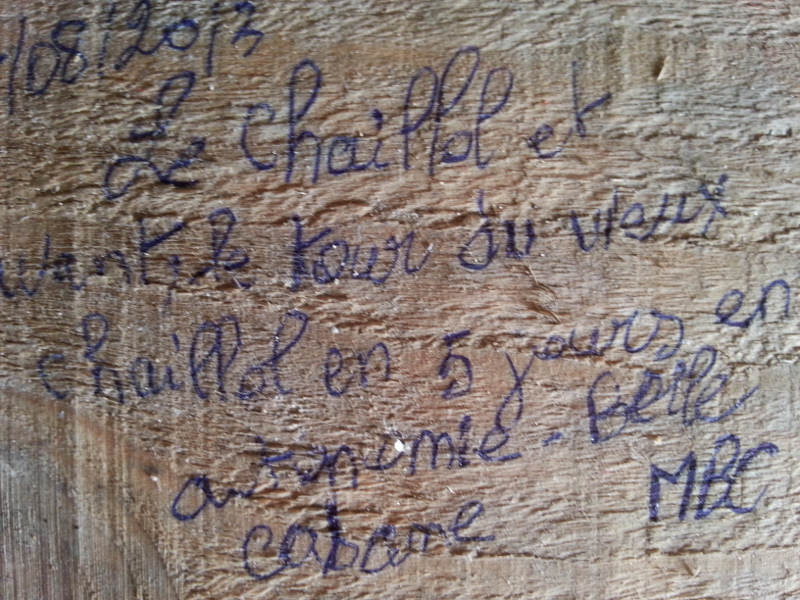 /08/2013
Le Chaillol et
avant, le tour du vieux
chaillol en 5 jours en
autonomie - Belle
cabane MBC